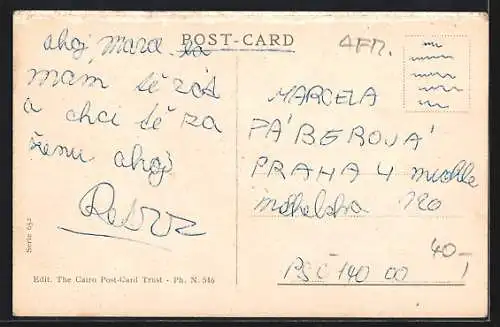 POST-CARD
ahoj Mara
mam tě rád
a chci tě za
ženu ahoj
AFR.
MARCELA
PÁBEROVÁ
PRAHA 4 michle
michelska 120
PSČ 140 00
40,-
Serie 652
Edit. The Cairo Post-Card Trust - Ph. N. 546